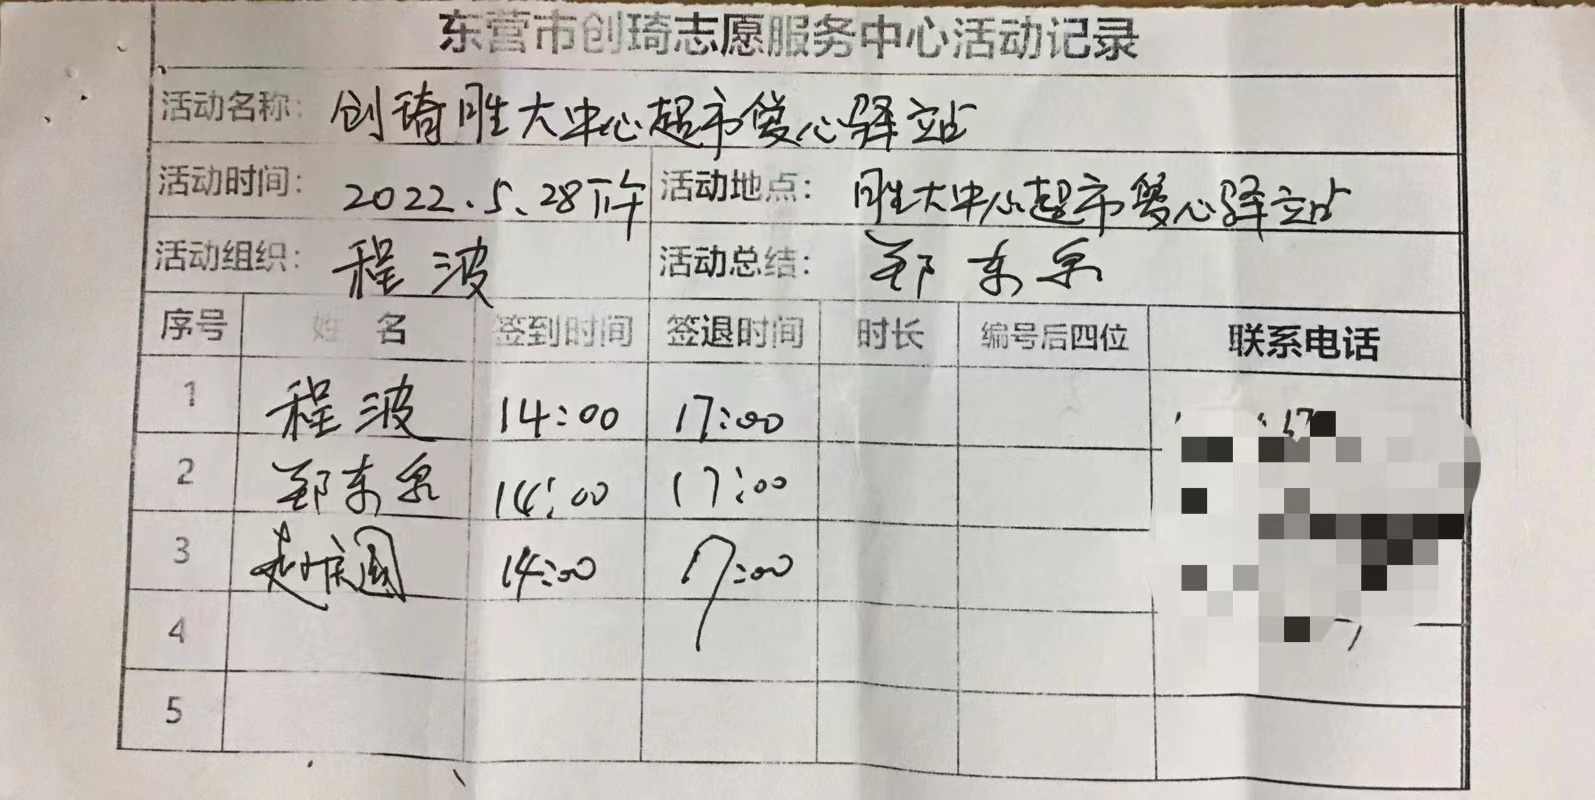 东营市创琦志愿服务中心活动记录
活动名称: 创琦胜大中心超市爱心驿站
活动时间: 2022.5.28下午 活动地点: 胜大中心超市爱心驿站
活动组织: 程波 活动总结: 郑东泉
序号 姓名 签到时间 签退时间 时长 编号后四位 联系电话
1 程波 14:00 17:00
2 郑东泉 14:00 17:00
3 赵 国 14:00 17:00
4
5